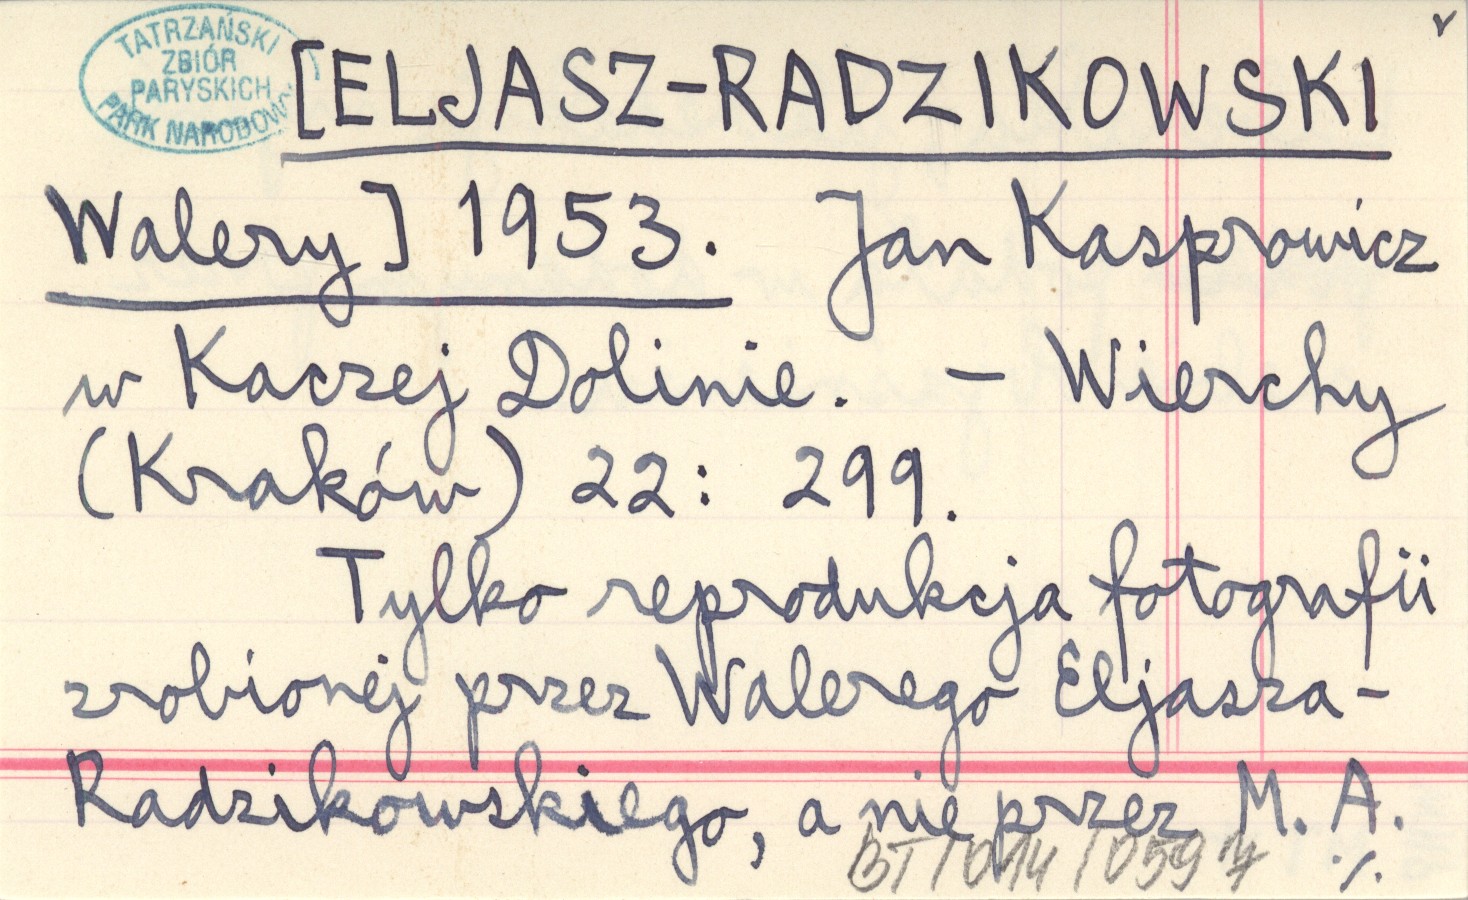 TATRZAŃSKI
ZBIÓR
PARYSKICH
PARK NARODOWY
[ELJASZ-RADZIKOWSKI
Walery] 1953. Jan Kasprowicz
w Kaczej Dolinie. — Wierchy
(Kraków) 22: 299.
Tylko reprodukcja fotografii
zrobionej przez Walerego Eljasza-
Radzikowskiego, a nie przez M. A.
BT/014/0597
./.